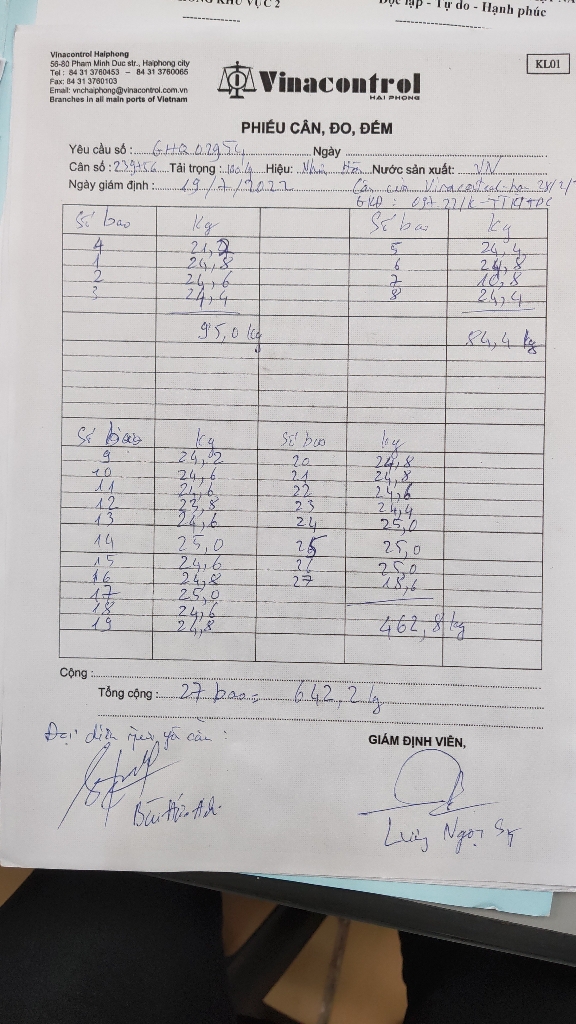 KHU VỰC 2
Độc lập - Tự do - Hạnh phúc
Vinacontrol Haiphong
56-80 Pham Minh Duc str., Haiphong city
Tel : 84 31 3760453 – 84 31 3760065
Fax: 84 31 3760103
Email: vnchaiphong@vinacontrol.com.vn
Branches in all main ports of Vietnam
Vinacontrol
HAI PHONG
KL01
PHIẾU CÂN, ĐO, ĐẾM
Yêu cầu số : GHQ 02954 Ngày
Cân số : Tải trọng : Hiệu: Nhơn Hòa Nước sản xuất: VN
Ngày giám định : 19/7/2022
Số bao Kg Số bao kg
4 21,2 5 24,4
1 24,8 6 24,8
2 24,6 7 10,8
3 24,4 8 24,4
95,0 kg 84,4 kg
Số bao kg Số bao kg
9 24,2 20 24,8
10 24,6 21 24,8
11 24,6 22 24,6
12 22,8 23 24,4
13 24,6 24 25,0
14 25,0 25 25,0
15 24,6 26 25,0
16 24,8 27 18,6
17 25,0
18 24,6
19 24,8 462,8 kg
Cộng :
Tổng cộng : 27 bao = 642,2 kg
Đại diện người yêu cầu :
GIÁM ĐỊNH VIÊN,